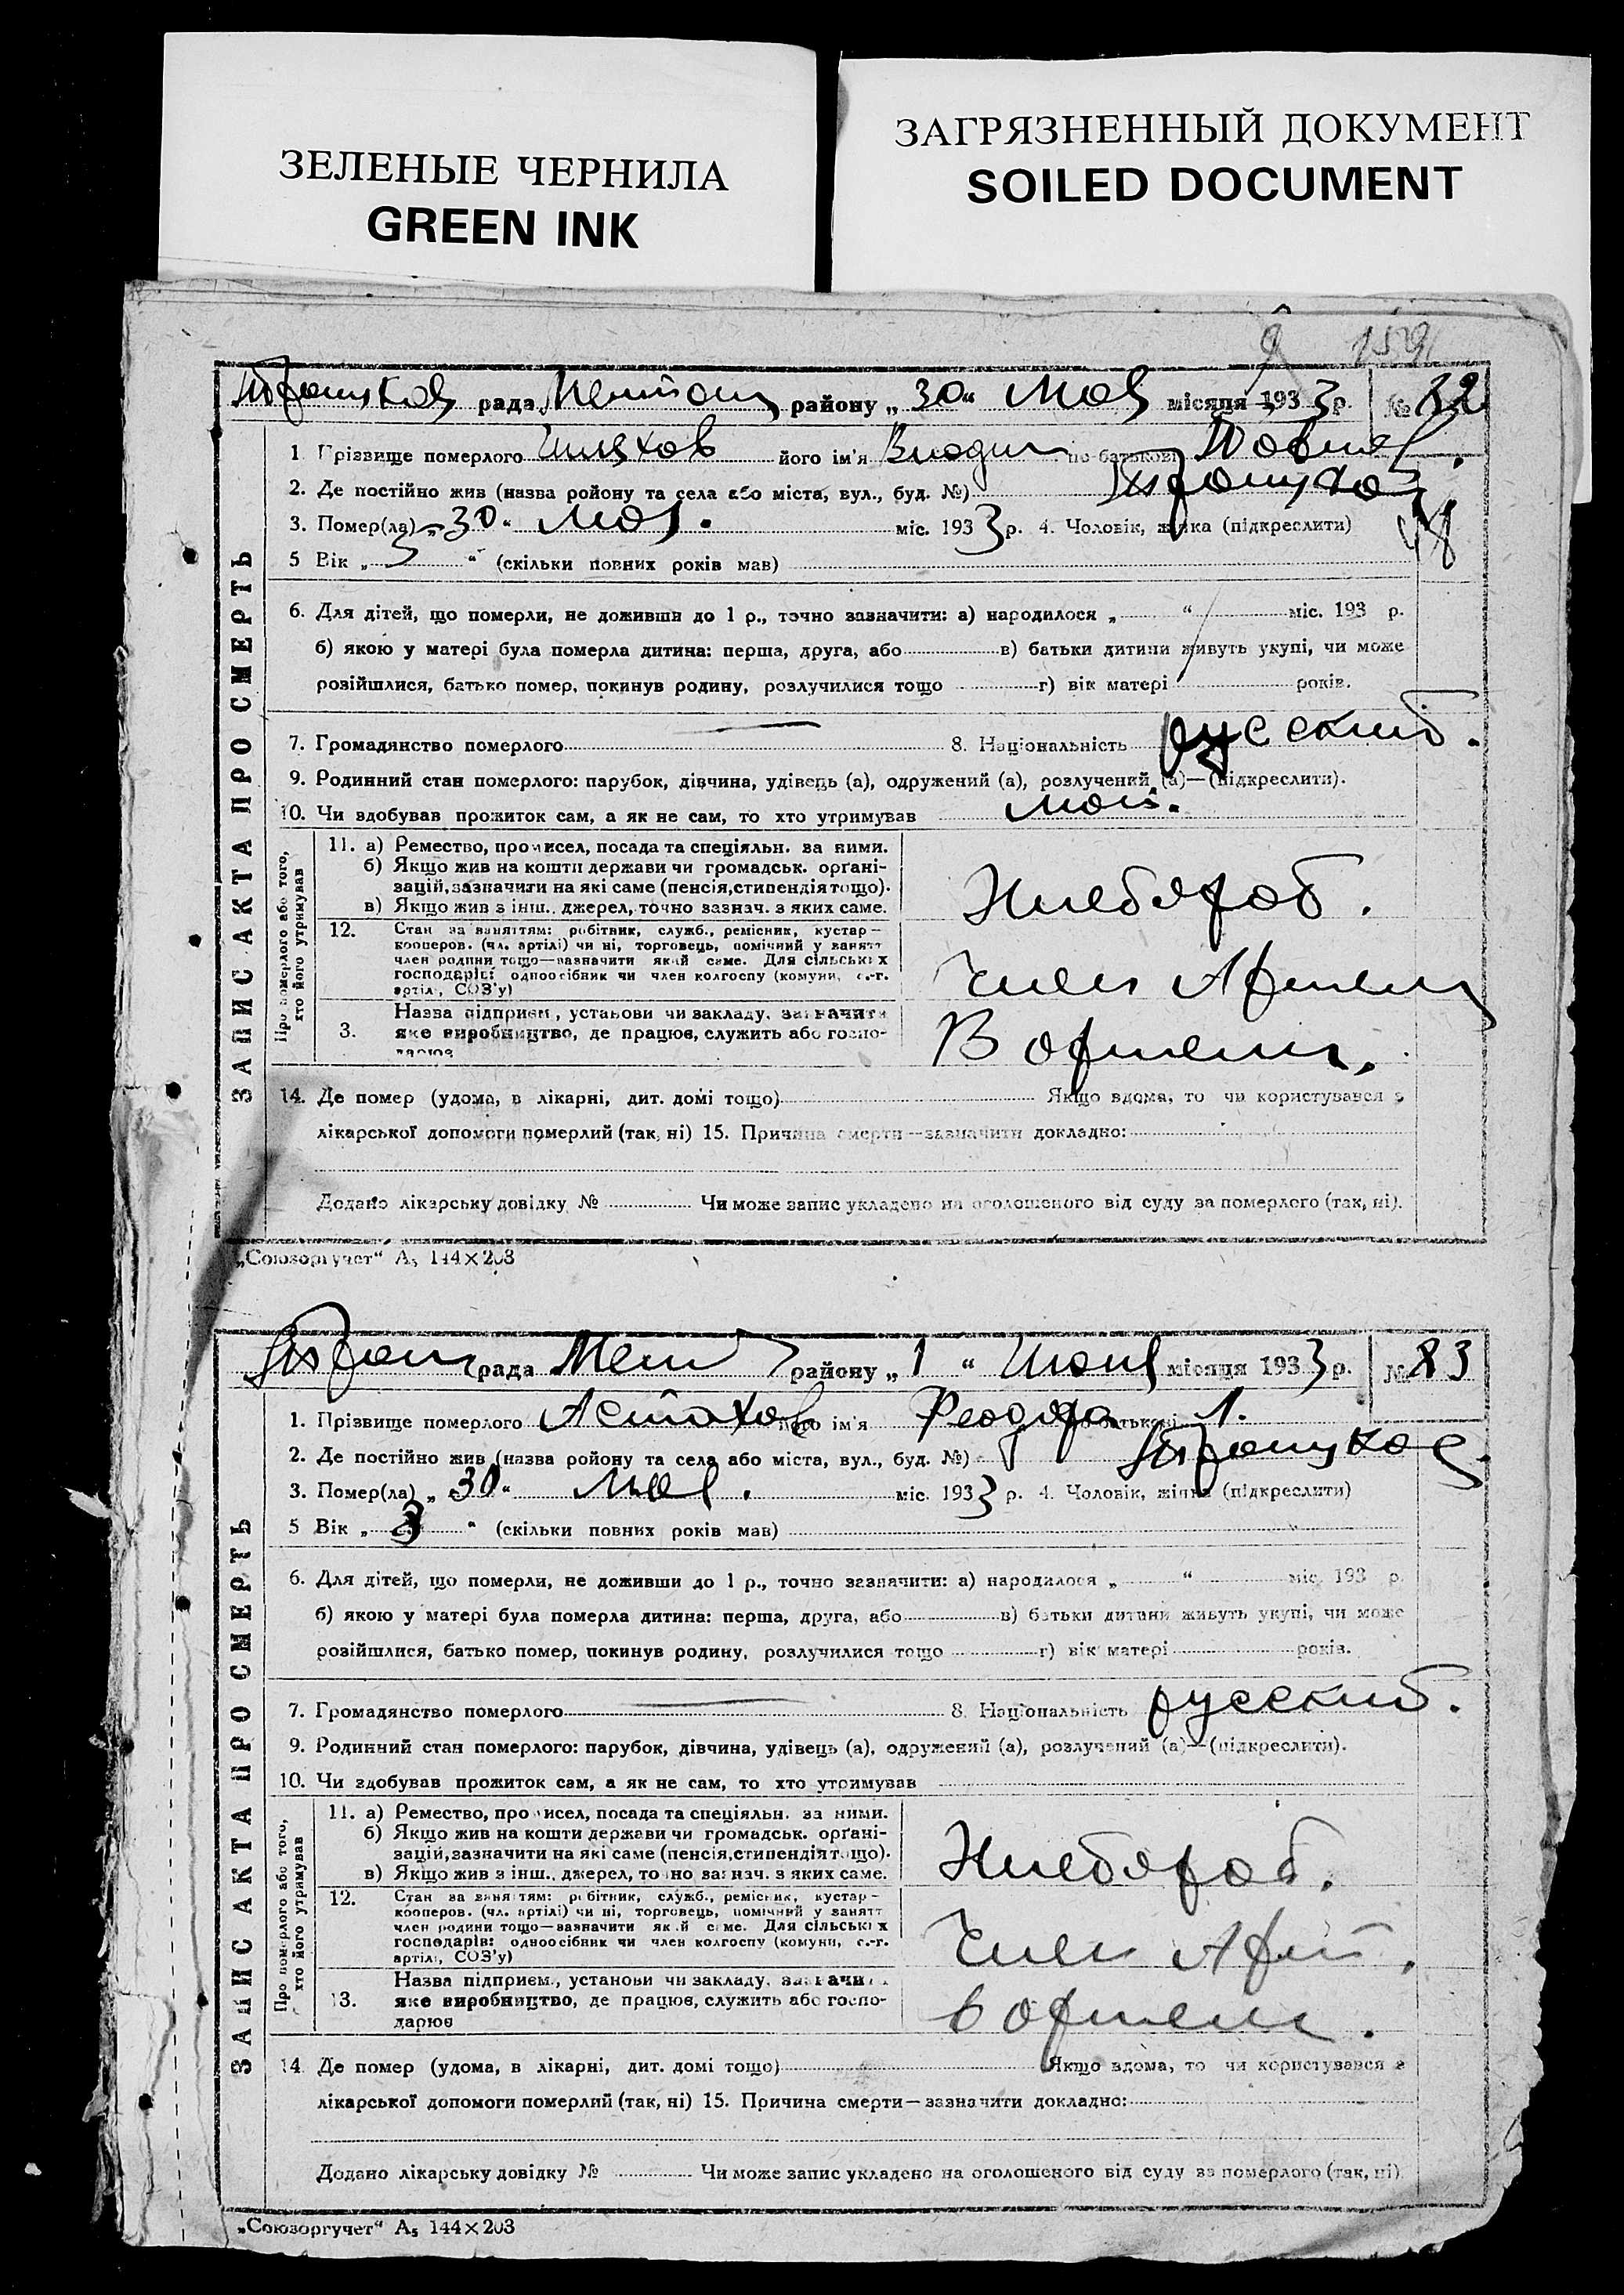 ЗЕЛЕНЫЕ ЧЕРНИЛА
GREEN INK
ЗАГРЯЗНЕННЫЙ ДОКУМЕНТ
SOILED DOCUMENT
159
рада району „30“ Мая місяця 1933 р. №
ЗАПИС АКТА ПРО СМЕРТЬ
1. Прізвище померлого його ім'я по батькові
2. Де постійно жив (назва ройону та села або міста, вул., буд. №)
3. Помер(ла) „30“ Мая. міс. 1933 р. 4. Чоловік, жінка (підкреслити)
5 Вік „ “ (скільки повних років мав)
6. Для дітей, що померли, не доживши до 1 р., точно зазначити: а) народилося „ “ міс. 193 р.
б) якою у матері була померла дитина: перша, друга, або в) батьки дитини живуть укупі, чи може
розійшлися, батько помер, покинув родину, розлучилися тощо г) вік матері років.
7. Громадянство померлого 8. Національність русский.
9. Родинний стан померлого: парубок, дівчина, удівець (а), одружений (а), розлучений (а)—(підкреслити).
10. Чи здобував прожиток сам, а як не сам, то хто утримував
Про померлого або того, хто його утримував
11. а) Ремество, промисел, посада та спеціяльн. за ними.
б) Якщо жив на кошти держави чи громадськ. організацій, зазначити на які саме (пенсія, стипендія тощо).
в) Якщо жив з інш. джерел, точно зазнач. з яких саме.
Хлебороб.
12. Стан за заняттям: робітник, служб., ремісник, кустар—
кооперов. (чл. артілі) чи ні, торговець, помічний у занятт
член родини тощо—зазначити який саме. Для сільських
господарів: одноосібник чи член колгоспу (комуни, с.-г.
артілі, СОЗ'у)
Член Артели
Назва підприєм., установи чи закладу, зазначити
3. яке виробництво, де працює, служить або госпо-
дарює
В артели.
14. Де помер (удома, в лікарні, дит. домі тощо) Якщо вдома, то чи користувався з
лікарської допомоги померлий (так, ні) 15. Причина смерти—зазначити докладно:
Додано лікарську довідку № Чи може запис укладено на оголошеного від суду за померлого (так, ні).
„Союзоргучет“ А₅ 144×203
рада району „1“ Июня місяця 1933 р. № 83
ЗАПИС АКТА ПРО СМЕРТЬ
1. Прізвище померлого Астахов його ім'я Феодора по батькові
2. Де постійно жив (назва ройону та села або міста, вул., буд. №)
3. Помер(ла) „30“ Мая. міс. 1933 р. 4. Чоловік, жінка (підкреслити)
5 Вік „3“ (скільки повних років мав)
6. Для дітей, що померли, не доживши до 1 р., точно зазначити: а) народилося „ “ міс. 193 р.
б) якою у матері була померла дитина: перша, друга, або в) батьки дитини живуть укупі, чи може
розійшлися, батько помер, покинув родину, розлучилися тощо г) вік матері років.
7. Громадянство померлого 8. Національність русский.
9. Родинний стан померлого: парубок, дівчина, удівець (а), одружений (а), розлучений (а)—(підкреслити).
10. Чи здобував прожиток сам, а як не сам, то хто утримував
Про померлого або того, хто його утримував
11. а) Ремество, промисел, посада та спеціяльн. за ними.
б) Якщо жив на кошти держави чи громадськ. організацій, зазначити на які саме (пенсія, стипендія тощо).
в) Якщо жив з інш. джерел, точно зазнач. з яких саме.
Хлебороб.
12. Стан за заняттям: робітник, служб., ремісник, кустар—
кооперов. (чл. артілі) чи ні, торговець, помічний у занятт
член родини тощо—зазначити який саме. Для сільських
господарів: одноосібник чи член колгоспу (комуни, с.-г.
артілі, СОЗ'у)
Член Арт.
Назва підприєм., установи чи закладу, зазначити
13. яке виробництво, де працює, служить або госпо-
дарює
в артели.
14. Де помер (удома, в лікарні, дит. домі тощо) Якщо вдома, то чи користувався з
лікарської допомоги померлий (так, ні) 15. Причина смерти—зазначити докладно:
Додано лікарську довідку № Чи може запис укладено на оголошеного від суду за померлого (так, ні)
„Союзоргучет“ А₅ 144×203